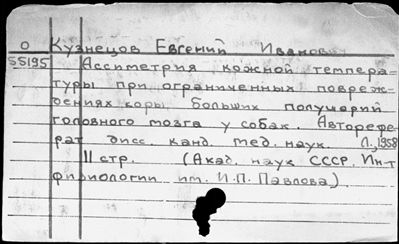 О Кузнецов Евгений Иванович
55195 Ассиметрия кожной темпера-
туры при ограниченных повреж-
дениях коры больших полушарий
головного мозга у собак. Авторефе-
рат дисс. канд. мед. наук. Л., 1958
11 стр. (Акад. наук СССР. Ин-т
физиологии им. И.П. Павлова.)